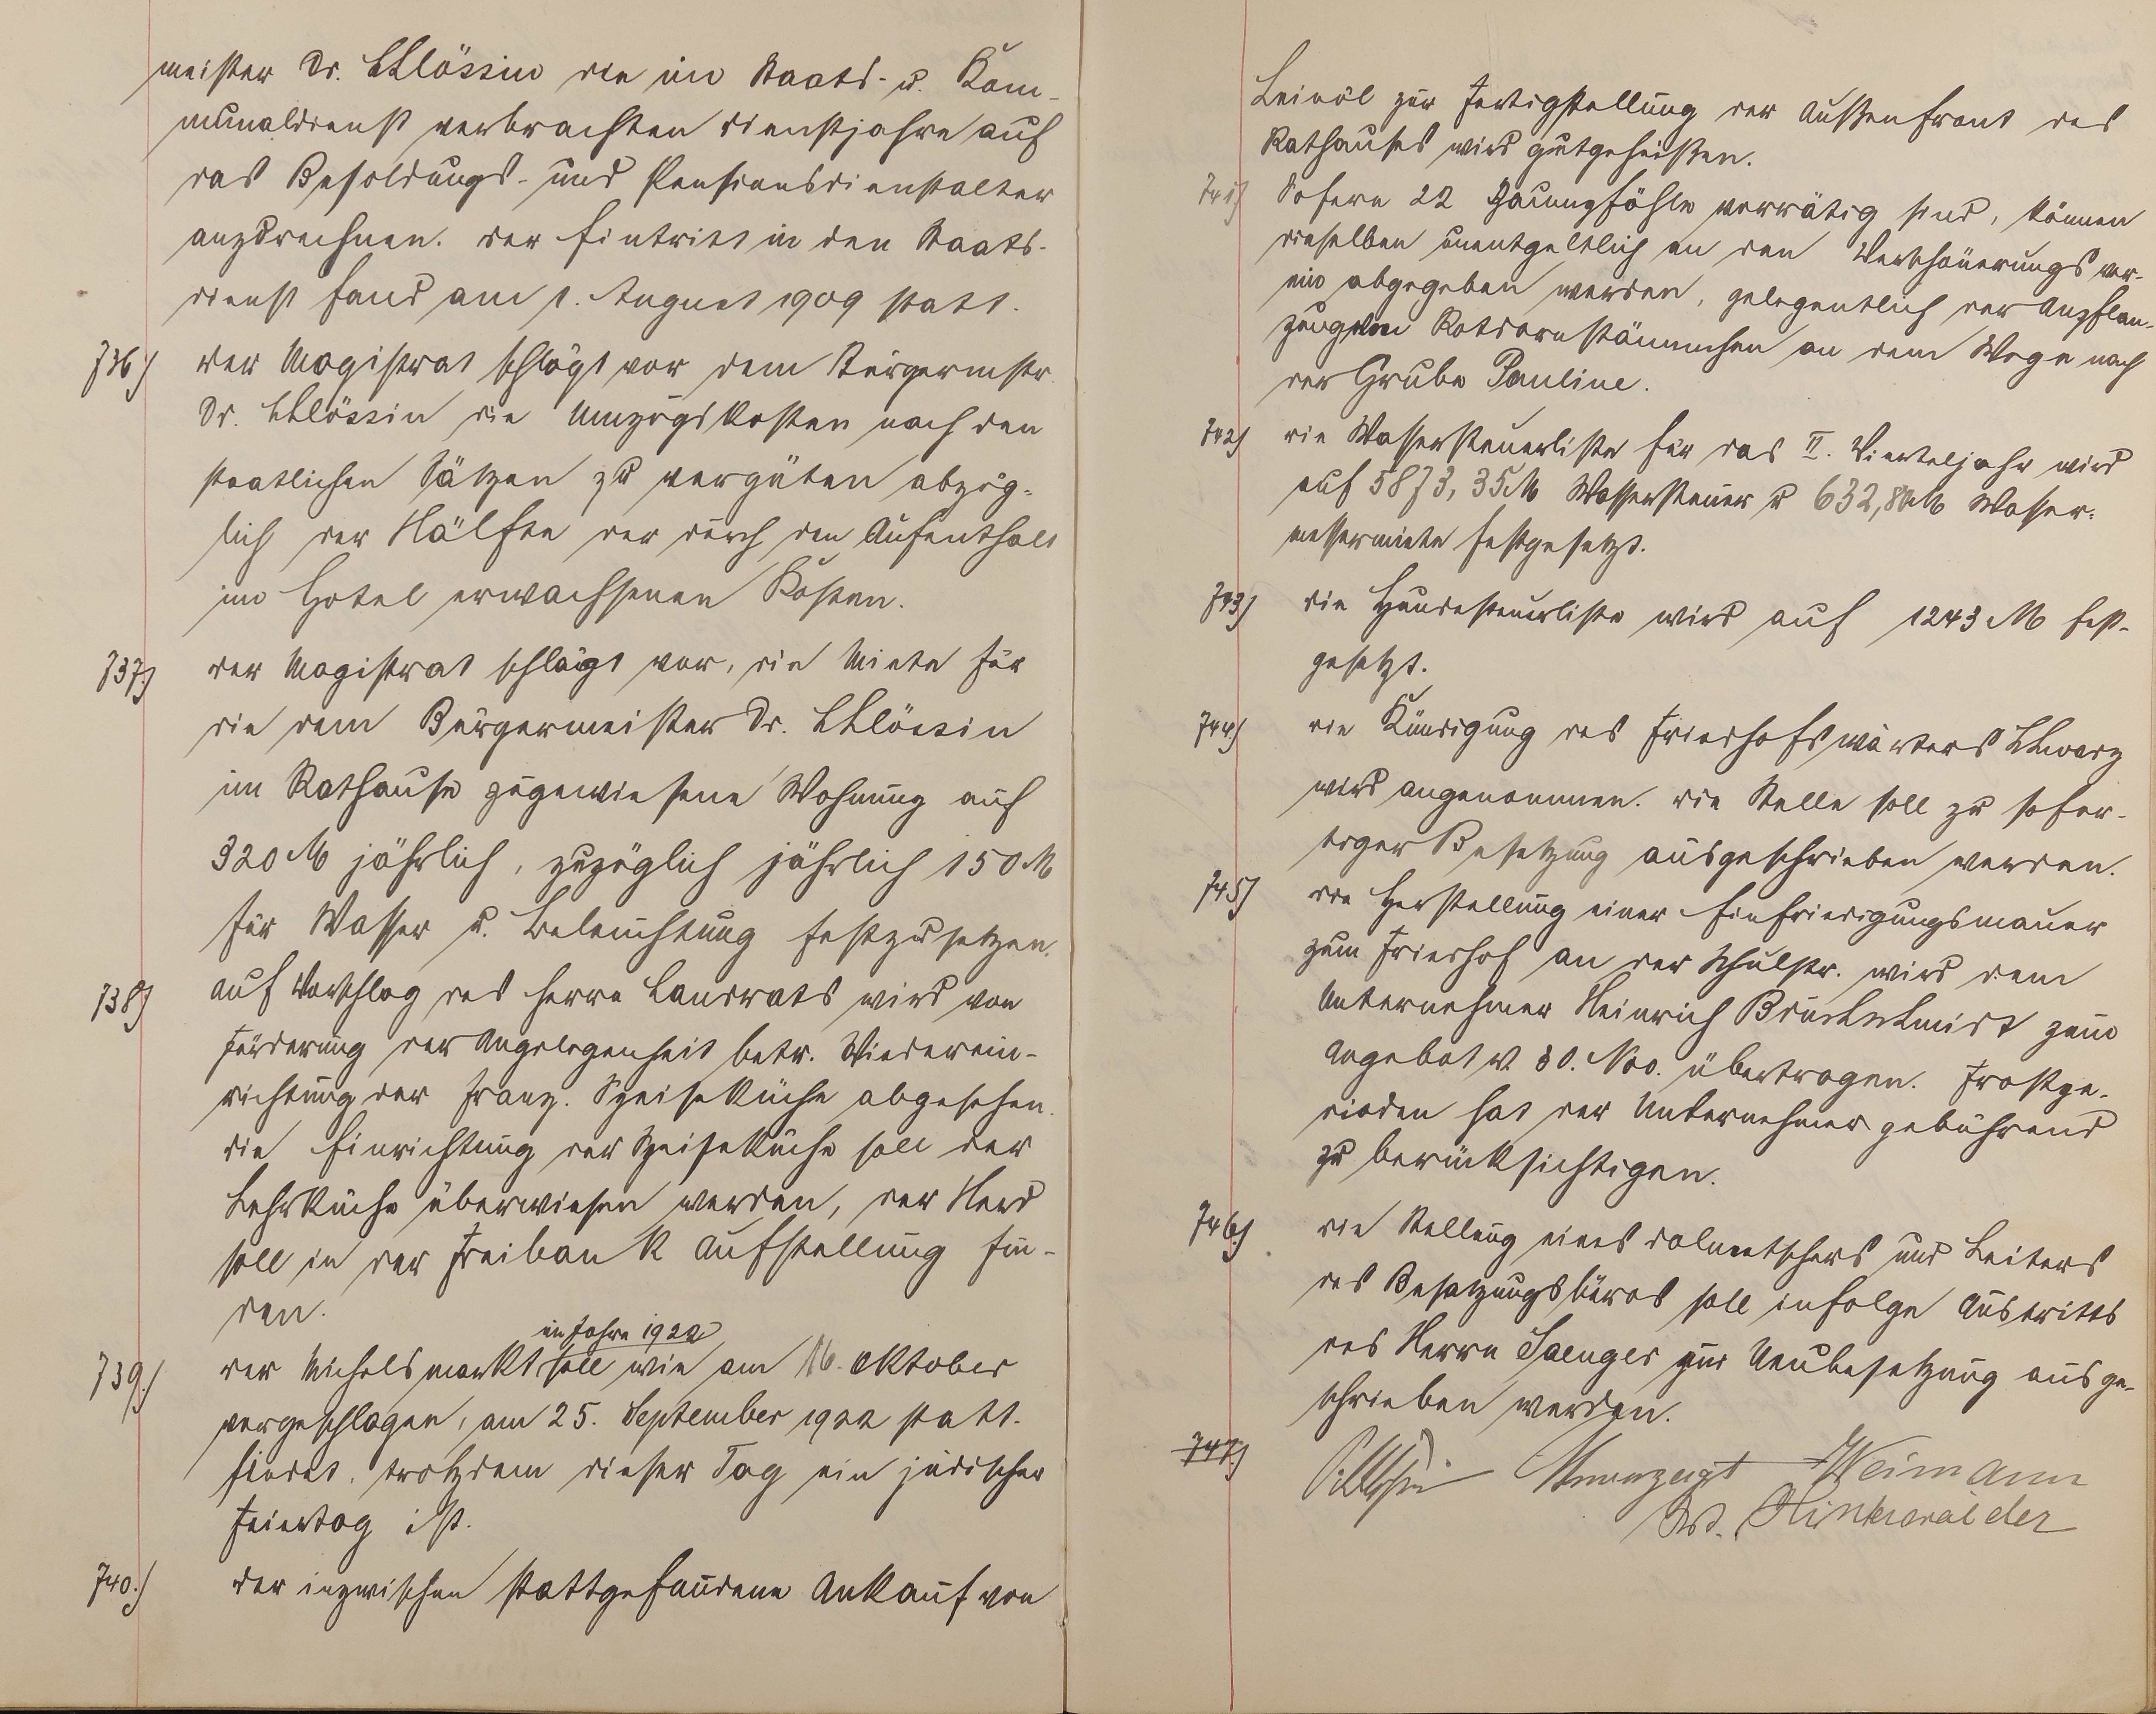 meister Dr. Schlössin die im Staats- u. Kom-
munaldienst verbrachten Dienstjahre auf
das Besoldungs- und Pensionsdienstalter
anzurechnen. Der Eintritt in den Staats-
dienst fand am 1. August 1909 statt.
736.) Der Magistrat schlägt vor dem Bürgermstr.
Dr. Schlössin die Umzugskosten nach den
staatlichen Sätzen zu vergüten abzüg-
lich der Hälfte der durch den Aufenthalt
im Hotel erwachsenen Kosten.
737.) Der Magistrat schlägt vor, die Miete für
die dem Bürgermeister Dr. Schlössin
im Rathause zugewiesene Wohnung auf
320 M jährlich, zuzüglich jährlich 150 M
für Wasser u. Beleuchtung festzusetzen.
738) Auf Vorschlag des Herrn Landrats wird von
Förderung der Angelegenheit betr. Wiederein-
richtung der franz. Speiseküche abgesehen.
Die Einrichtung der Speiseküche soll der
Lehrküche überwiesen werden, der Herd
soll in der Freibank Aufstellung fin-
den.
im Jahre 1922
739.) Der Michelsmarkt soll wie am 16. Oktober
vorgeschlagen, am 25. September 1922 statt-
findet, trotzdem dieser Tag ein jüdischer
Feiertag ist.
740.) Der inzwischen stattgefundene Ankauf von
Leinöl zur Fertigstellung der Außenfront des
Rathauses wird gutgeheißen.
741) Sofern 22 Zaunpfähle vorrätig sind, können
dieselben unentgeltlich an den Verschönerungsver-
ein abgegeben werden, gelegentlich der Anpflan-
zung von Rotdornstämmchen an dem Wege nach
der Grube Pauline.
742) Die Wassersteuerliste für das II. Vierteljahr wird
auf 5873,35 M Wassersteuer u 632,80 M Wasser-
messermiete festgesetzt.
743) Die Hundesteuerliste wird auf 1243 M fest-
gesetzt.
744.) Die Kündigung des Friedhofswärters Schwarz
wird angenommen. Die Stelle soll zu sofor-
tiger Besetzung ausgeschrieben werden.
745) Die Herstellung einer Einfriedigungsmauer
zum Friedhof an der Schulstr. wird dem
Unternehmer Heinrich Bruchschmidt zum
Angebot v. 30. Nov. übertragen. Frostpe-
rioden hat der Unternehmer gebührend
zu berücksichtigen.
746) Die Stellung eines Dolmetschers und Leiters
des Besatzungsbüros soll infolge Austritts
des Herrn Saenger zur Neubesetzung ausge-
schrieben werden.
747)
Schlössin Weimann
Hinterwälder